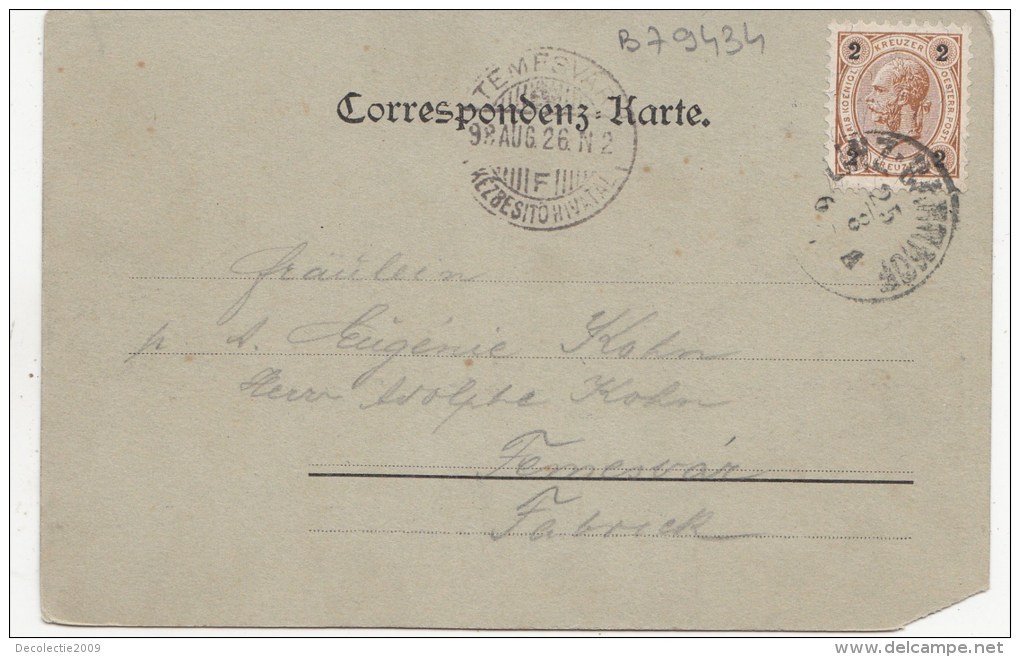 B79434
2 KREUZER 2
KAIS. KOENIGL.
OESTERR. POST.
2 KREUZER 2
TEMESVÁR
Correspondenz-Karte.
98 AUG. 26. N 2
F
KÉZBESITŐ HIVATAL
25
8
Fräulein
p. A. Eugénie Kohn
Herrn Adolphe Kohn
Temesvár
Fabrick
Decolectie2009